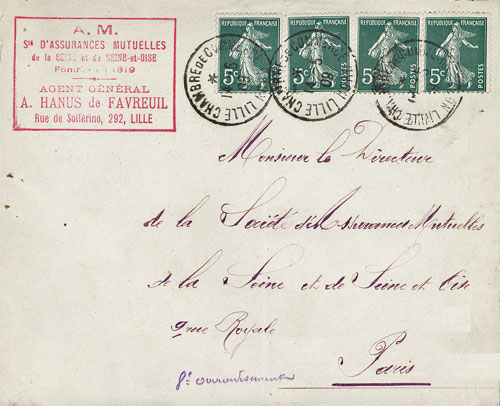 A. M.
Sté D'ASSURANCES MUTUELLES
de la SEINE et de SEINE-et-OISE
Fondée en 1819
AGENT GÉNÉRAL
A. HANUS de FAVREUIL
Rue de Solférino, 292, LILLE
REPUBLIQUE FRANÇAISE
5c
REPUBLIQUE FRANÇAISE
5c
REPUBLIQUE FRANÇAISE
5c
REPUBLIQUE FRANÇAISE
5c
LILLE CHAMBRE DE COMMERCE
09
LILLE CHAMBRE DE COMMERCE
09
LILLE
Monsieur le Directeur
de la Société d'Assurances Mutuelles
de la Seine et de Seine et Oise
9 rue Royale
Paris
8e arrondissement